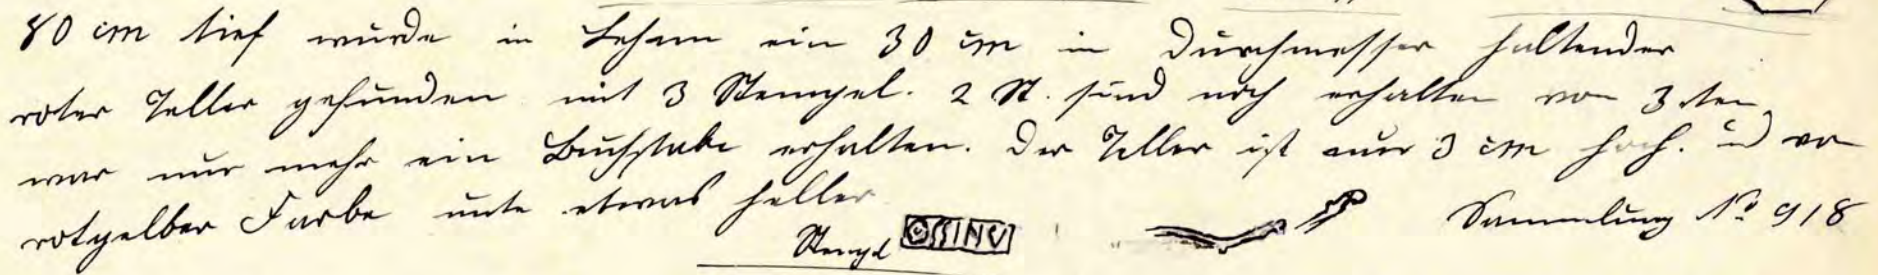 80 cm tief wurde in Lehm ein 30 cm in Durchmesser haltender
roter Teller gefunden mit 3 Stempel. 2 St. sind noch erhalten von 3 ten
war nur mehr ein Buchstabe erhalten. Der Teller ist nur 3 cm hoch. u von
rotgelber Farbe unte etwas heller
Stempel OSSINU Sammlung No 918